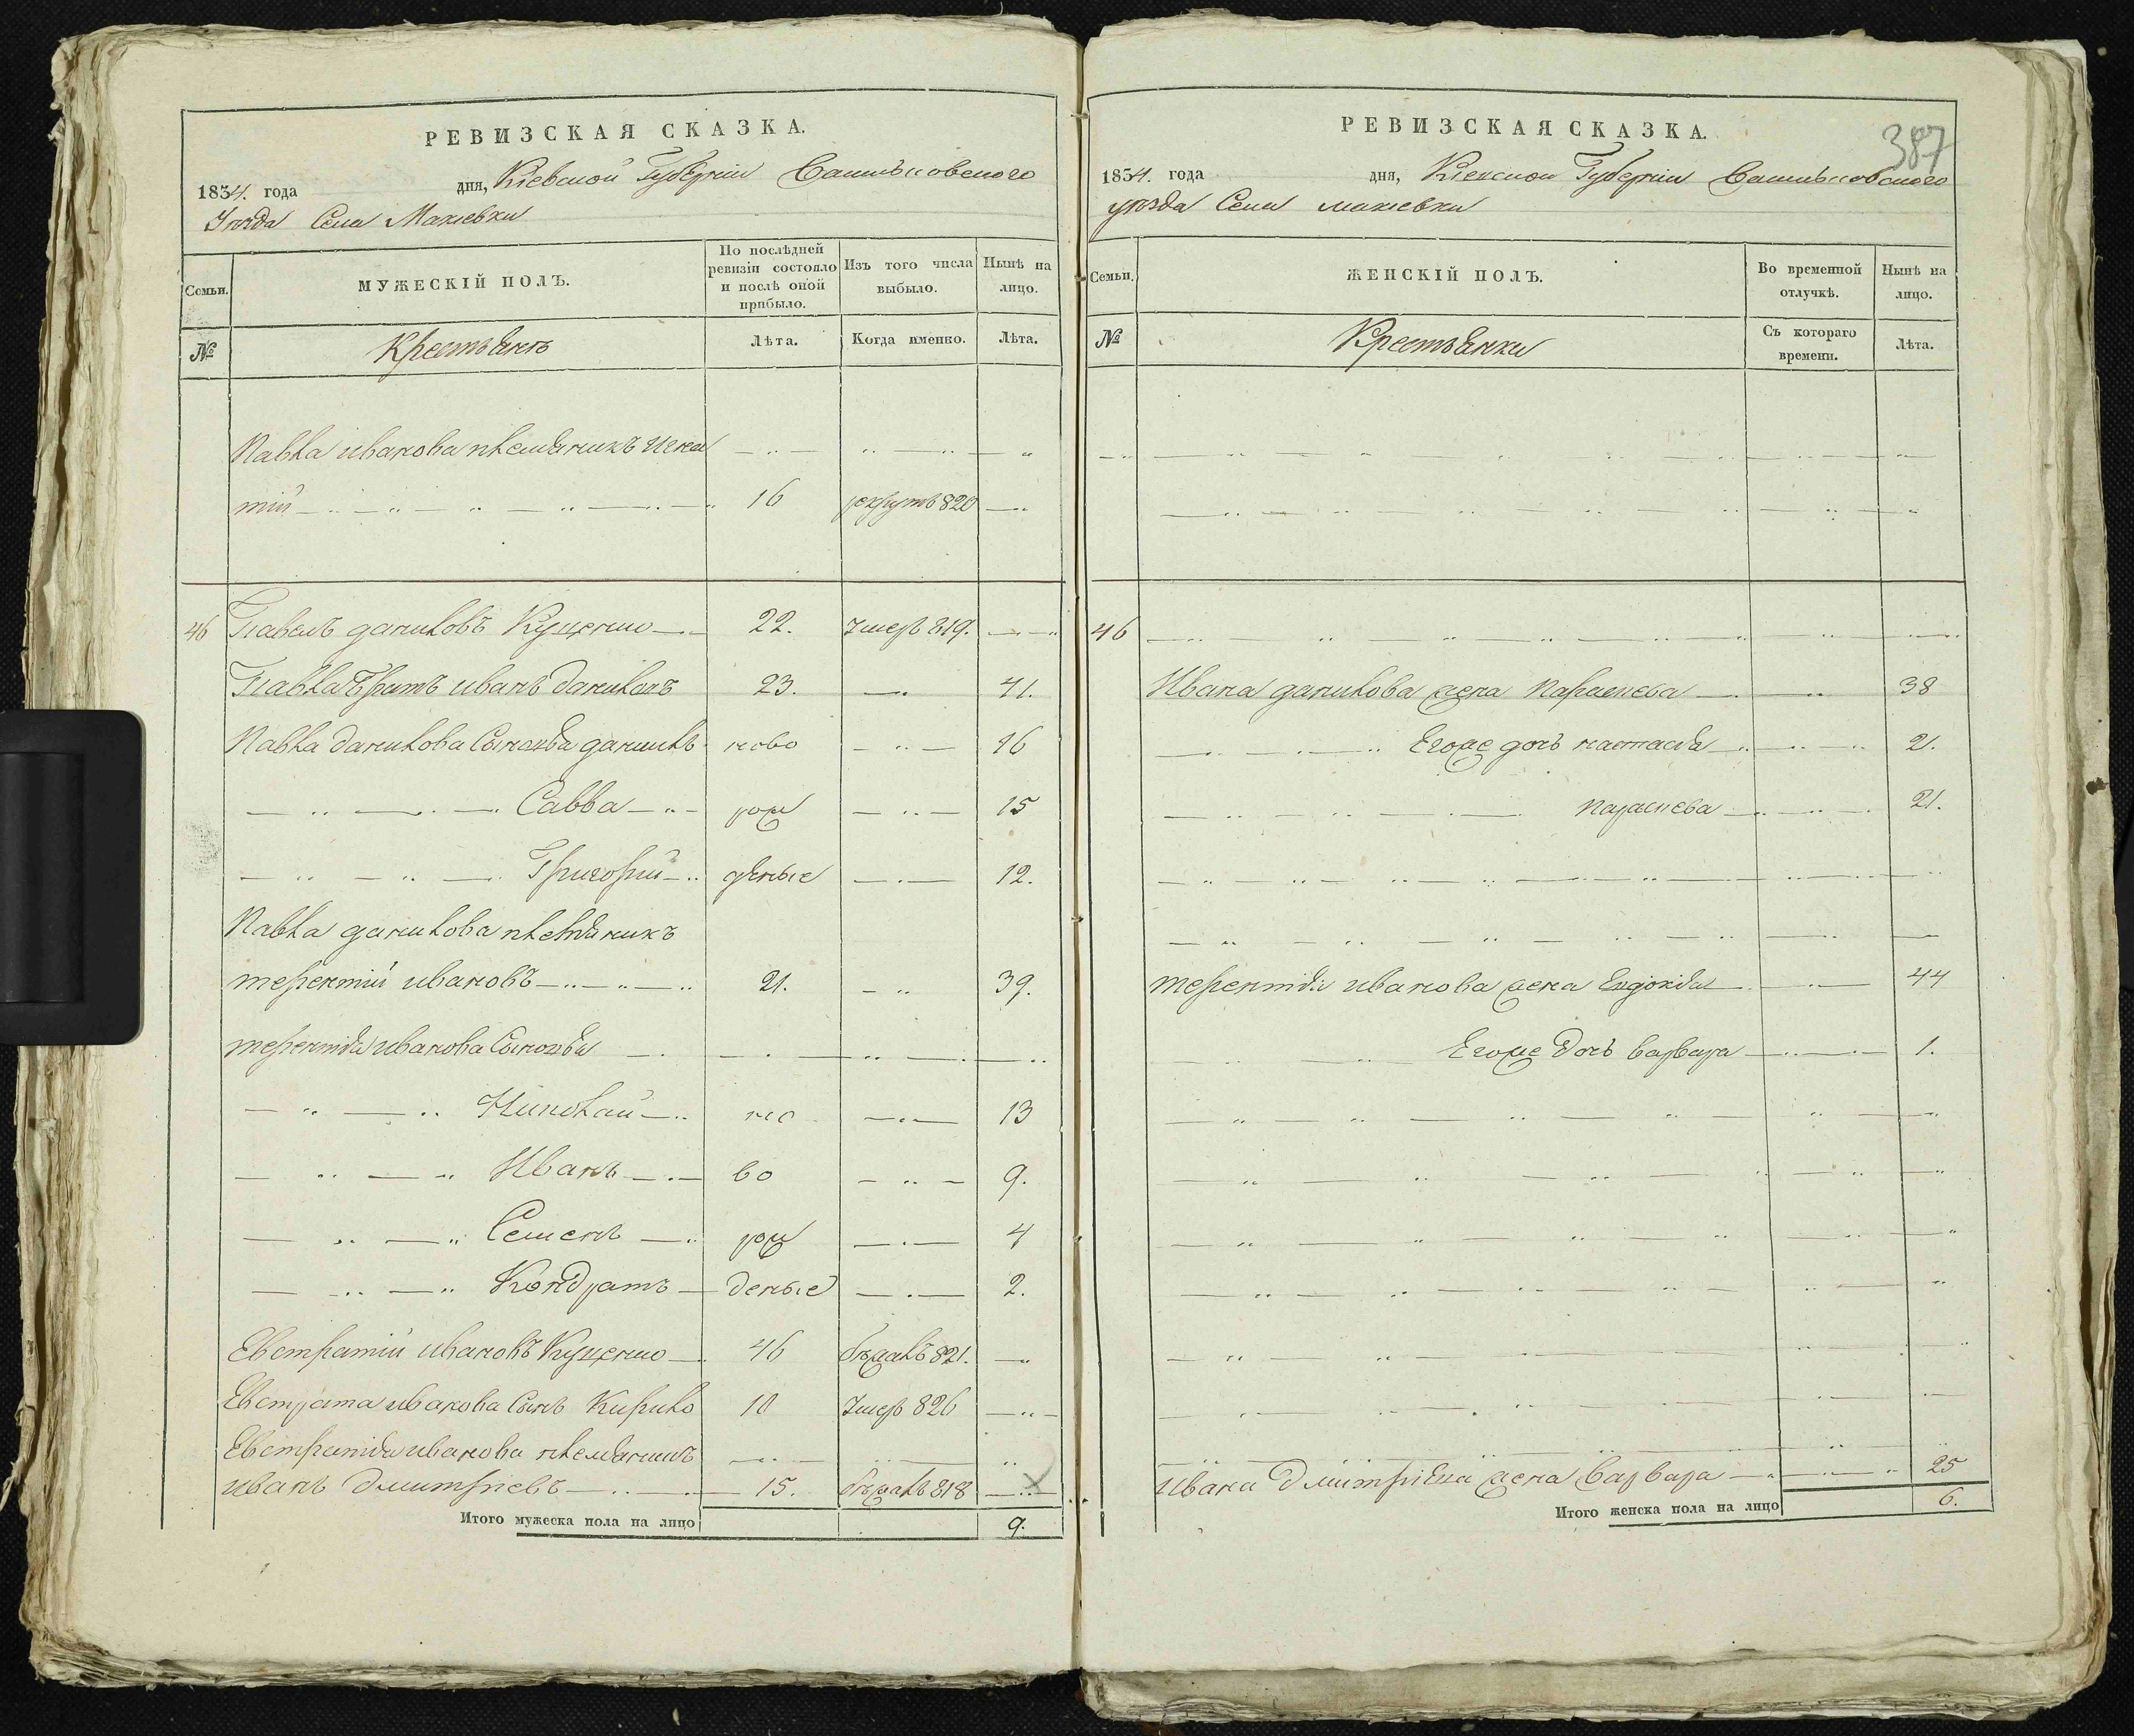 РЕВИЗСКАЯ СКАЗКА.
1834. года дня, Кіевской Губерніи Сквирского
Уезда Села Макіевки
Семьи.
МУЖЕСКІЙ ПОЛЪ.
По послѣдней ревизіи состояло и послѣ оной прибыло.
Изъ того числа выбыло.
Нынѣ на лицо.
№
Крестьянъ
Лѣта.
Когда именно.
Лѣта.
Павла иванова племяникъ Игна
тій 16 рекрутъ 820
46 Павелъ даниловъ Куценко 22. Умеръ 819.
Павла братъ иванъ даниловъ 23. 41.
Павла данилова Сыновья данило ново 16
Савва рож 15
Григорий деные 12.
Павла данилова племяникъ
терентий ивановъ 21. 39.
терентия иванова Сыновья
Николай но 13
Иванъ во 9.
Семенъ рож 4
Кондратъ деные 2.
Евстратий ивановъ Куценко 46 бежалъ 821.
Евстрата иванова Сынъ Кирило 10 Умеръ 826
Евстратия иванова племяникъ
иванъ дмитриевъ 15. бежалъ 818
Итого мужеска пола на лицо 9.
387
РЕВИЗСКАЯ СКАЗКА.
1834. года дня, Кіевской Губерніи
уезда Села макіевки
Семьи.
ЖЕНСКІЙ ПОЛЪ.
Во временной отлучкѣ.
Нынѣ на лицо.
№
Крестьянки
Съ котораго времени.
Лѣта.
46
Ивана данилова жена Параскева 38
Егоже дочь настасия 2.
параскева 21.
терентия иванова жена Евдокия 44
Егоже дочь варвара 1.
Ивана дмитриева жена варвара 25
Итого женска пола на лицо 6.